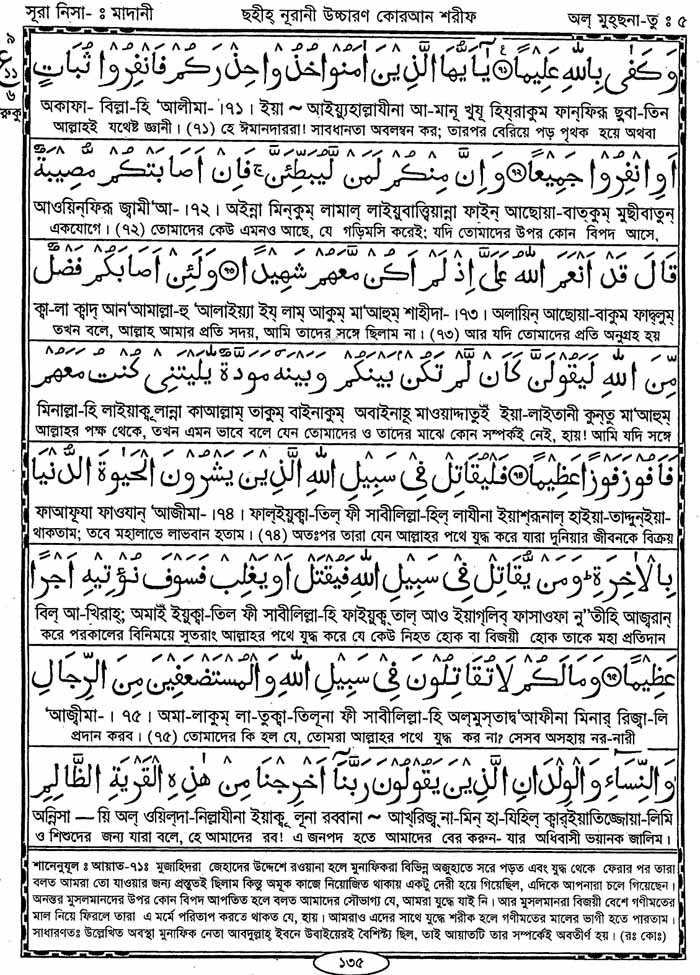 সূরা নিসা- ঃ মাদানী
ছহীহ্ নূরানী উচ্চারণ কোরআন শরীফ
অল্ মুহ্ছনা-তু ঃ ৫
৯
ع
১১
৬
রুকু
وَكَفٰى بِاللّٰهِ عَلِيْمًا ۝ يٰٓاَيُّهَا الَّذِيْنَ اٰمَنُوْا خُذُوْا حِذْرَكُمْ فَانْفِرُوْا ثُبَاتٍ
অকাফা- বিল্লা-হি 'আলীমা-।৭১। ইয়া ~ আইয়্যুহাল্লাযীনা আ-মানূ খুযূ হিয্রাকুম ফান্ফিরূ ছুবা-তিন
আল্লাহই যথেষ্ট জ্ঞানী। (৭১) হে ঈমানদাররা! সাবধানতা অবলম্বন কর; তারপর বেরিয়ে পড় পৃথক হয়ে অথবা
اَوِ انْفِرُوْا جَمِيْعًا ۝ وَاِنَّ مِنْكُمْ لَمَنْ لَّيُبَطِّئَنَّ ۚ فَاِنْ اَصَابَتْكُمْ مُّصِيْبَةٌ
আওয়িন্ফিরূ জ্বামী'আ-।৭২। অইন্না মিন্কুম্ লামাল্ লাইয়ুবাত্ত্বিয়ান্না ফাইন্ আছোয়া-বাত্কুম্ মুছীবাতুন্
একযোগে। (৭২) তোমাদের কেউ এমনও আছে, যে গড়িমসি করেই; যদি তোমাদের উপর কোন বিপদ আসে,
قَالَ قَدْ اَنْعَمَ اللّٰهُ عَلَيَّ اِذْ لَمْ اَكُنْ مَّعَهُمْ شَهِيْدًا ۝ وَلَئِنْ اَصَابَكُمْ فَضْلٌ
ক্বা-লা ক্বাদ্ আন্'আমাল্লা-হু 'আলাইয়্যা ইয্ লাম্ আকুম্ মা'আহুম্ শাহীদা-।৭৩। অলায়িন্ আছোয়া-বাকুম ফাদ্বলুম্
তখন বলে, আল্লাহ আমার প্রতি সদয়, আমি তাদের সঙ্গে ছিলাম না। (৭৩) আর যদি তোমাদের প্রতি অনুগ্রহ হয়
مِّنَ اللّٰهِ لَيَقُوْلَنَّ كَاَنْ لَّمْ تَكُنْ بَيْنَكُمْ وَبَيْنَهٗ مَوَدَّةٌ يّٰلَيْتَنِيْ كُنْتُ مَعَهُمْ
মিনাল্লা-হি লাইয়াকূলান্না কাআল্লাম্ তাকুম্ বাইনাকুম্ অবাইনাহূ মাওয়াদ্দাতুইঁ ইয়া-লাইতানী কুন্তু মা'আহুম্
আল্লাহর পক্ষ থেকে, তখন এমন ভাবে বলে যেন তোমাদের ও তাদের মাঝে কোন সম্পর্কই নেই, হায়! আমি যদি সঙ্গে
فَاَفُوْزَ فَوْزًا عَظِيْمًا ۝ فَلْيُقَاتِلْ فِيْ سَبِيْلِ اللّٰهِ الَّذِيْنَ يَشْرُوْنَ الْحَيٰوةَ الدُّنْيَا
ফাআফূযা ফাওযান্ 'আজীমা-।৭৪। ফাল্ইয়ুক্বা-তিল্ ফী সাবীলিল্লা-হিল্ লাযীনা ইয়াশ্রূনাল্ হাইয়া-তাদ্দুন্ইয়া-
থাকতাম; তবে মহালাভে লাভবান হতাম। (৭৪) অতঃপর তারা যেন আল্লাহর পথে যুদ্ধ করে যারা দুনিয়ার জীবনকে বিক্রয়
بِالْاٰخِرَةِ ؕ وَمَنْ يُّقَاتِلْ فِيْ سَبِيْلِ اللّٰهِ فَيُقْتَلْ اَوْ يَغْلِبْ فَسَوْفَ نُؤْتِيْهِ اَجْرًا
বিল্ আ-খিরাহ্; অমাইঁ ইয়ুক্বা-তিল ফী সাবীলিল্লা-হি ফাইয়ুকুতাল্ আও ইয়াগ্লিব্ ফাসাওফা নু"তীহি আজ্বরান্
করে পরকালের বিনিময়ে সুতরাং আল্লাহর পথে যুদ্ধ করে যে কেউ নিহত হোক বা বিজয়ী হোক তাকে মহা প্রতিদান
عَظِيْمًا ۝ وَمَا لَكُمْ لَا تُقَاتِلُوْنَ فِيْ سَبِيْلِ اللّٰهِ وَالْمُسْتَضْعَفِيْنَ مِنَ الرِّجَالِ
'আজীমা-। ৭৫। অমা-লাকুম্ লা-তুক্বা-তিলূনা ফী সাবীলিল্লা-হি অল্মুস্তাদ্ব'আফীনা মিনার্ রিজ্বা-লি
প্রদান করব। (৭৫) তোমাদের কি হল যে, তোমরা আল্লাহর পথে যুদ্ধ কর না? সেসব অসহায় নর-নারী
وَالنِّسَآءِ وَالْوِلْدَانِ الَّذِيْنَ يَقُوْلُوْنَ رَبَّنَآ اَخْرِجْنَا مِنْ هٰذِهِ الْقَرْيَةِ الظَّالِمِ
অন্নিসা — য়ি অল্ ওয়িল্দা-নিল্লাযীনা ইয়াকূ্ লূনা রব্বানা ~ আখ্রিজ্বনা-মিন্ হা-যিহিল্ ক্বার্ইয়াতিজ্জোয়া-লিমি
ও শিশুদের জন্য যারা বলে, হে আমাদের রব! এ জনপদ হতে আমাদের বের করুন- যার অধিবাসী ভয়ানক জালিম।
শানেনুযূল ঃ আয়াত-৭১ঃ মুজাহিদরা জেহাদের উদ্দেশে রওয়ানা হলে মুনাফিকরা বিভিন্ন অজুহাতে সরে পড়ত এবং যুদ্ধ থেকে ফেরার পর তারা
বলত আমরা তো যাওয়ার জন্য প্রস্তুতই ছিলাম কিন্তু অমুক কাজে নিয়োজিত থাকায় একটু দেরী হয়ে গিয়েছিল, এদিকে আপনারা চলে গিয়েছেন।
অনন্তর মুসলমানদের উপর কোন বিপদ আপতিত হলে বলত আমাদের সৌভাগ্য যে, আমরা যুদ্ধে যাই নি। আর মুসলমানরা বিজয়ী বেশে গণীমতের
মাল নিয়ে ফিরলে তারা এ মর্মে পরিতাপ করতে থাকত যে, হায়। আমরাও এদের সাথে যুদ্ধে শরীক হলে গণীমতের মালের ভাগী হতে পারতাম।
সাধারণতঃ উল্লেখিত অবস্থা মুনাফিক নেতা আবদুল্লাহ্ ইবনে উবাইয়েরই বৈশিষ্ট্য ছিল, তাই আয়াতটি তার সম্পর্কেই অবতীর্ণ হয়। (রঃ কোঃ)
১৩৫